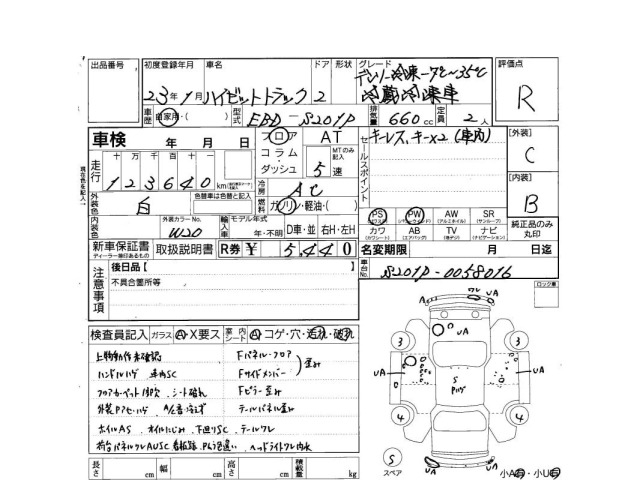 出品番号
初度登録年月
車名
ドア
形状
グレード
評価点
23年1月
ハイゼットトラック
2
デンソー冷凍-7℃~35℃
冷蔵冷凍車
R
車歴
自家用・( )
型式
EBD-S201P
排気量
660 cc
定員
2人
車検
年 月 日
フロア
コラム・
ダッシュ
AT
MTのみ記入
5速
セールスポイント
キーレス、キー×2(車内)
【外装】
C
【内装】
B
走行
十 万 千 百 十 一
123640 km
冷房
AC
燃料
ガソリン・軽油・( )
外装色
白
色替車は色替と記入
内装色
外装カラーNo.
W20
輸入車
モデル年式
年・不明
D車・並
右H・左H
PS
(パワステ)
PW
(パワーウィンドウ)
AW
(アルミホイル)
SR
(サンルーフ)
カワ
(カワシート)
AB
(エアバッグ)
TV
(テレビ)
ナビ
(ナビゲーション)
純正品のみ
丸印
新車保証書
ディーラー捺印あるもの
取扱説明書
R券
¥ 5,440
名変期限
月 日迄
注意事項
後日品【
不具合箇所等
車台No.
S201P-0058016
ロック車
検査員記入
ガラス
A・X要ス
室内シート
A・コゲ・穴・汚れ・破れ
上物動作未確認
Fパネル・フロア
歪み
ハンドルハゲ 車内SC
Fサイドメンバー
シート破れ
Fピラー歪み
テールパネル歪み
ホイルAS
下廻りSC
テールワレ
ヘッドライトワレ内水
長さ
cm
幅
cm
高さ
cm
積載量
kg
A
ワレ
A
UA
UA
UA
UA
3
3
4
4
S
S
スペア
小A・小U